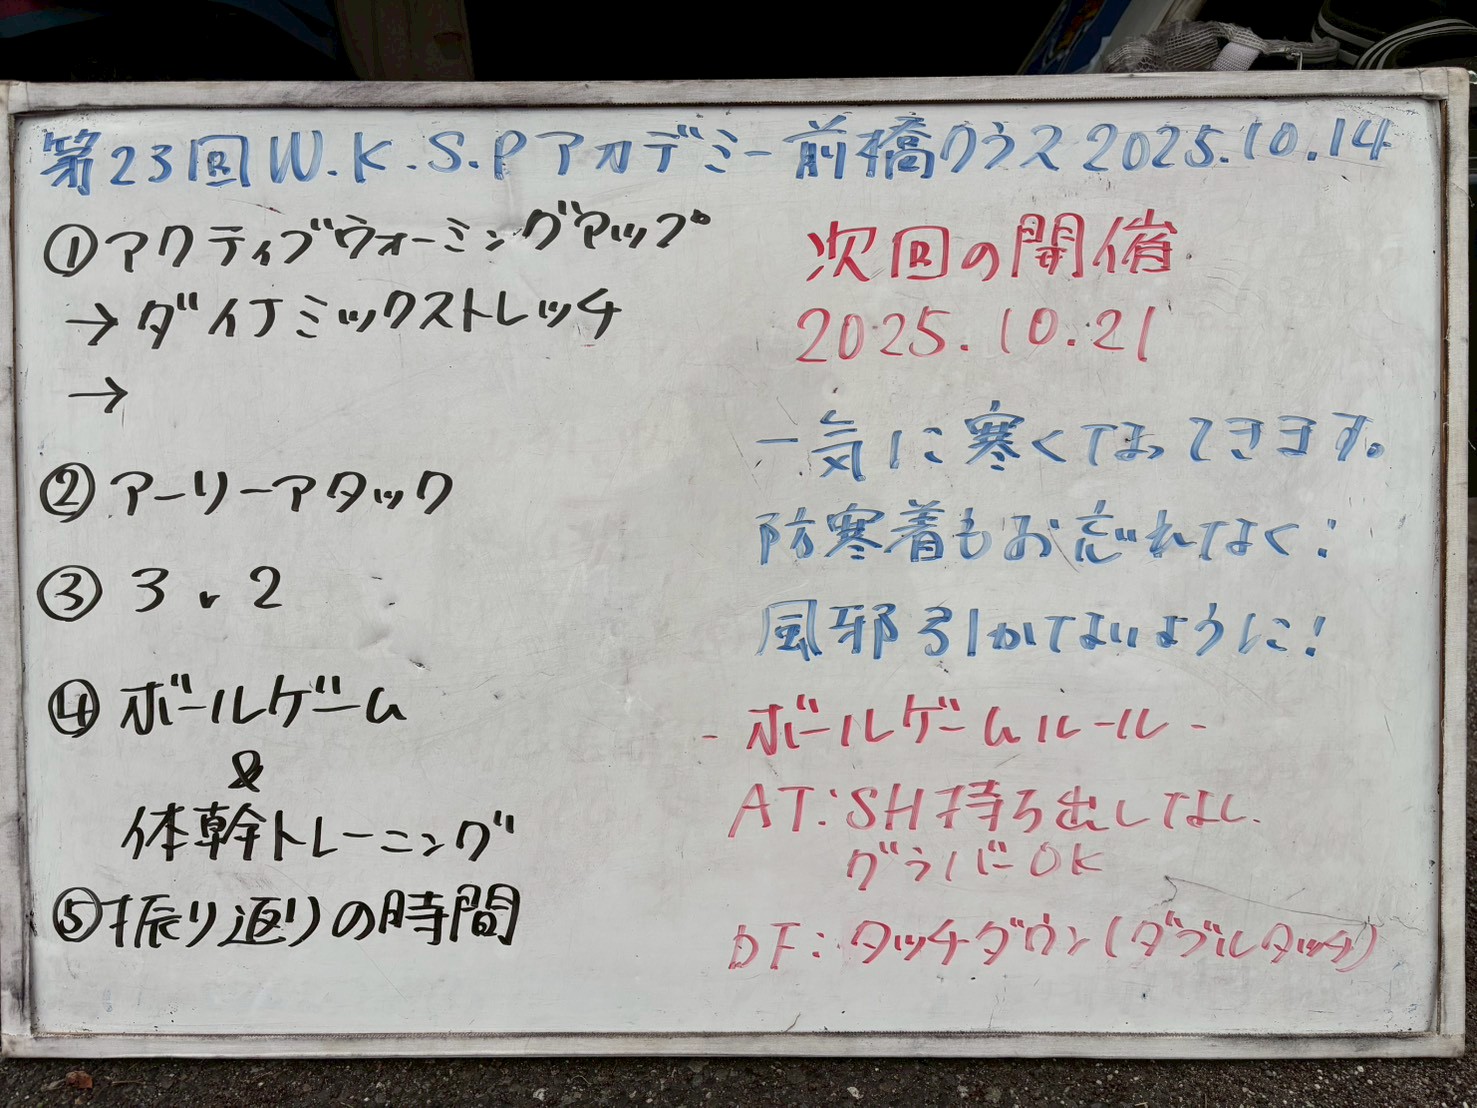 第23回W.K.S.Pアカデミー前橋クラス2025.10.14
①アクティブウォーミングアップ
→ダイナミックストレッチ
→
②アーリーアタック
③3v2
④ボールゲーム
&
体幹トレーニング
⑤振り返りの時間
次回の開催
2025.10.21
一気に寒くなってきます。
防寒着もお忘れなく!
風邪引かないように!
-ボールゲームルール-
AT:SH持ち出しなし
グラバーOK
DF:タッチダウン(ダブルタッチ)